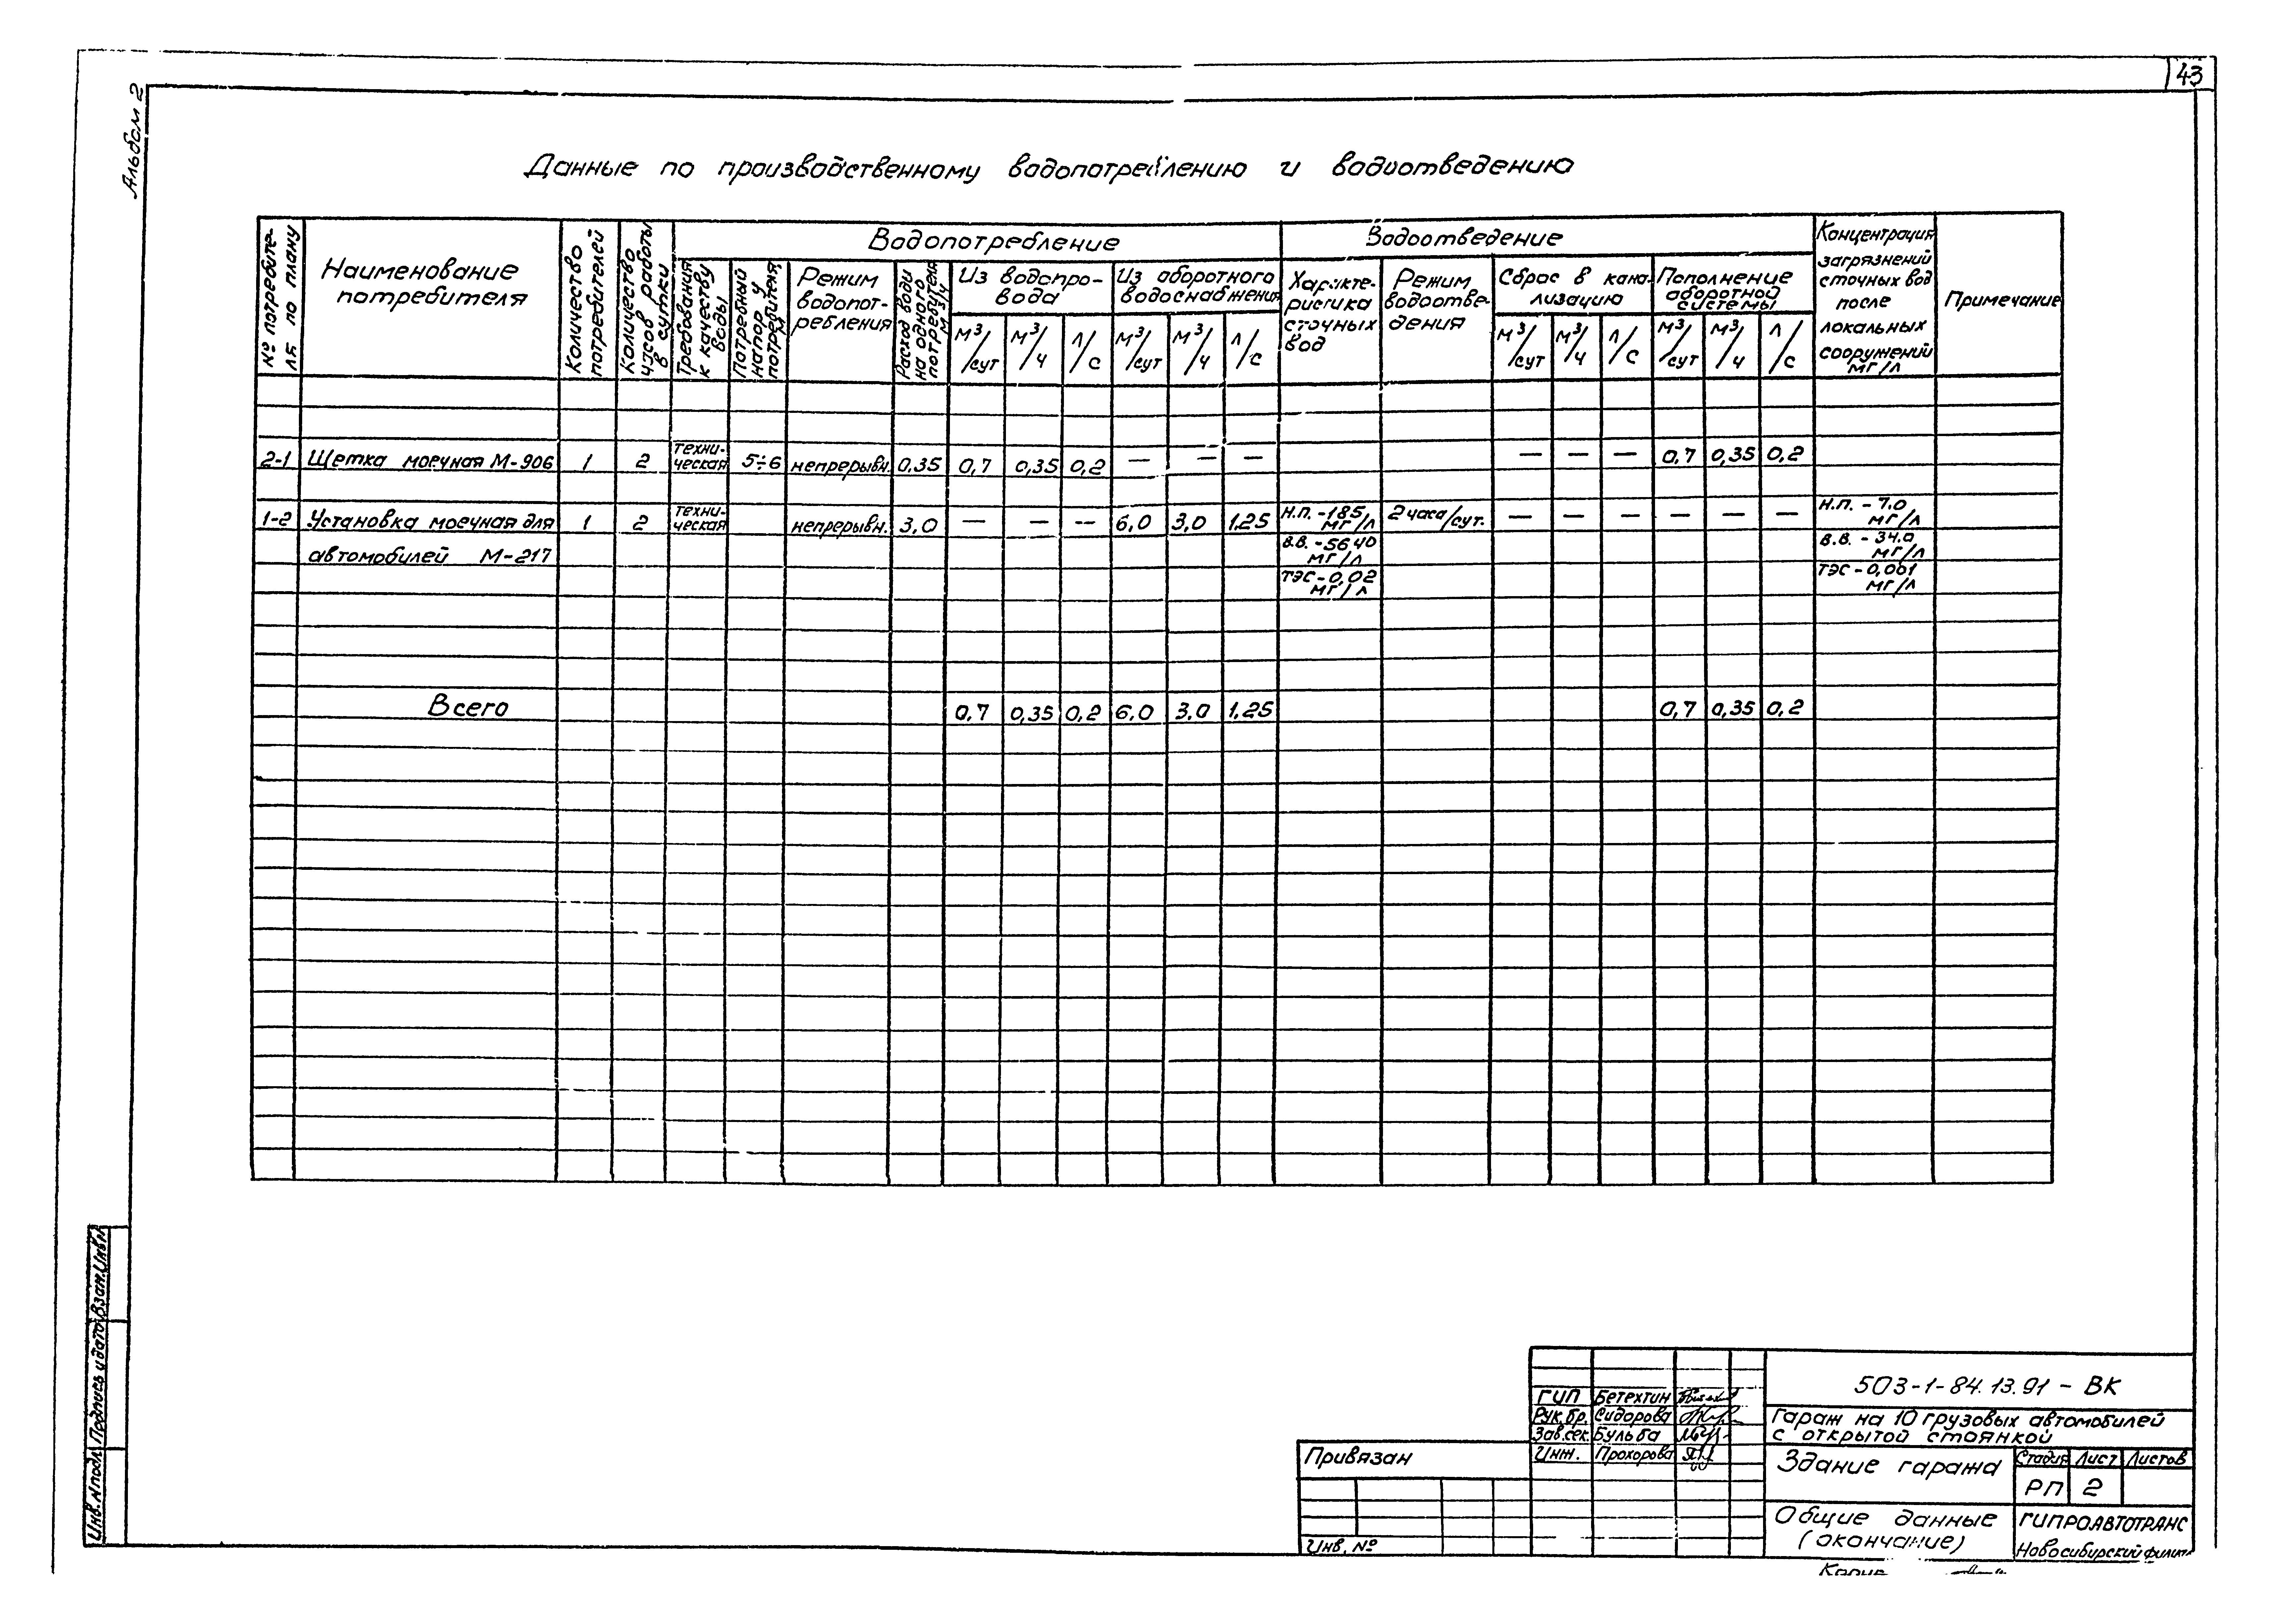 43
Альбом 2
Данные по производственному водопотреблению и водоотведению
№ потребите-
ля по плану
Наименование
потребителя
Количество
потребителей
Количество
часов работы
в сутки
Водопотребление
Требования
к качеству
воды
Потребный
напор у
потребителя
М
Режим
водопот-
ребления
Расход воды
на одного
потребителя
м³/ч
Из водопро-
вода
м³/сут м³/ч л/с
Из оборотного
водоснабжения
м³/сут м³/ч л/с
Водоотведение
Характе-
ристика
сточных
вод
Режим
водоотве-
дения
Сброс в кана-
лизацию
м³/сут м³/ч л/с
Пополнение
оборотной
системы
м³/сут м³/ч л/с
Концентрация
загрязнений
сточных вод
после
локальных
сооружений
мг/л
Примечание
2-1 Щетка моечная М-906 1 2 техни-
ческая 5÷6 непрерывн. 0,35 0,7 0,35 0,2 — — — — — — 0,7 0,35 0,2
1-2 Установка моечная для 1 2 техни-
ческая непрерывн. 3,0 — — — 6,0 3,0 1,25 Н.П. - 185, мг/л 2 часа/сут. — — — — — — Н.П. - 7.0 мг/л
автомобилей М-217 В.В. - 5640 мг/л В.В. - 34.0 мг/л
ТЭС - 0,02 мг/л ТЭС - 0,001 мг/л
Всего 0,7 0,35 0,2 6,0 3,0 1,25 0,7 0,35 0,2
Инв. № подл. Подпись и дата Взам. Инв №
503-1-84.13.91 - ВК
ГИП Бетехтин
Рук. бр. Сидорова
Зав. сек. Бульба
Инж. Прохорова
Гараж на 10 грузовых автомобилей
с открытой стоянкой
Привязан
Здание гаража
Стадия Лист Листов
РП 2
Общие данные
(окончание)
ГИПРОАВТОТРАНС
Новосибирский филиал
Инв. №